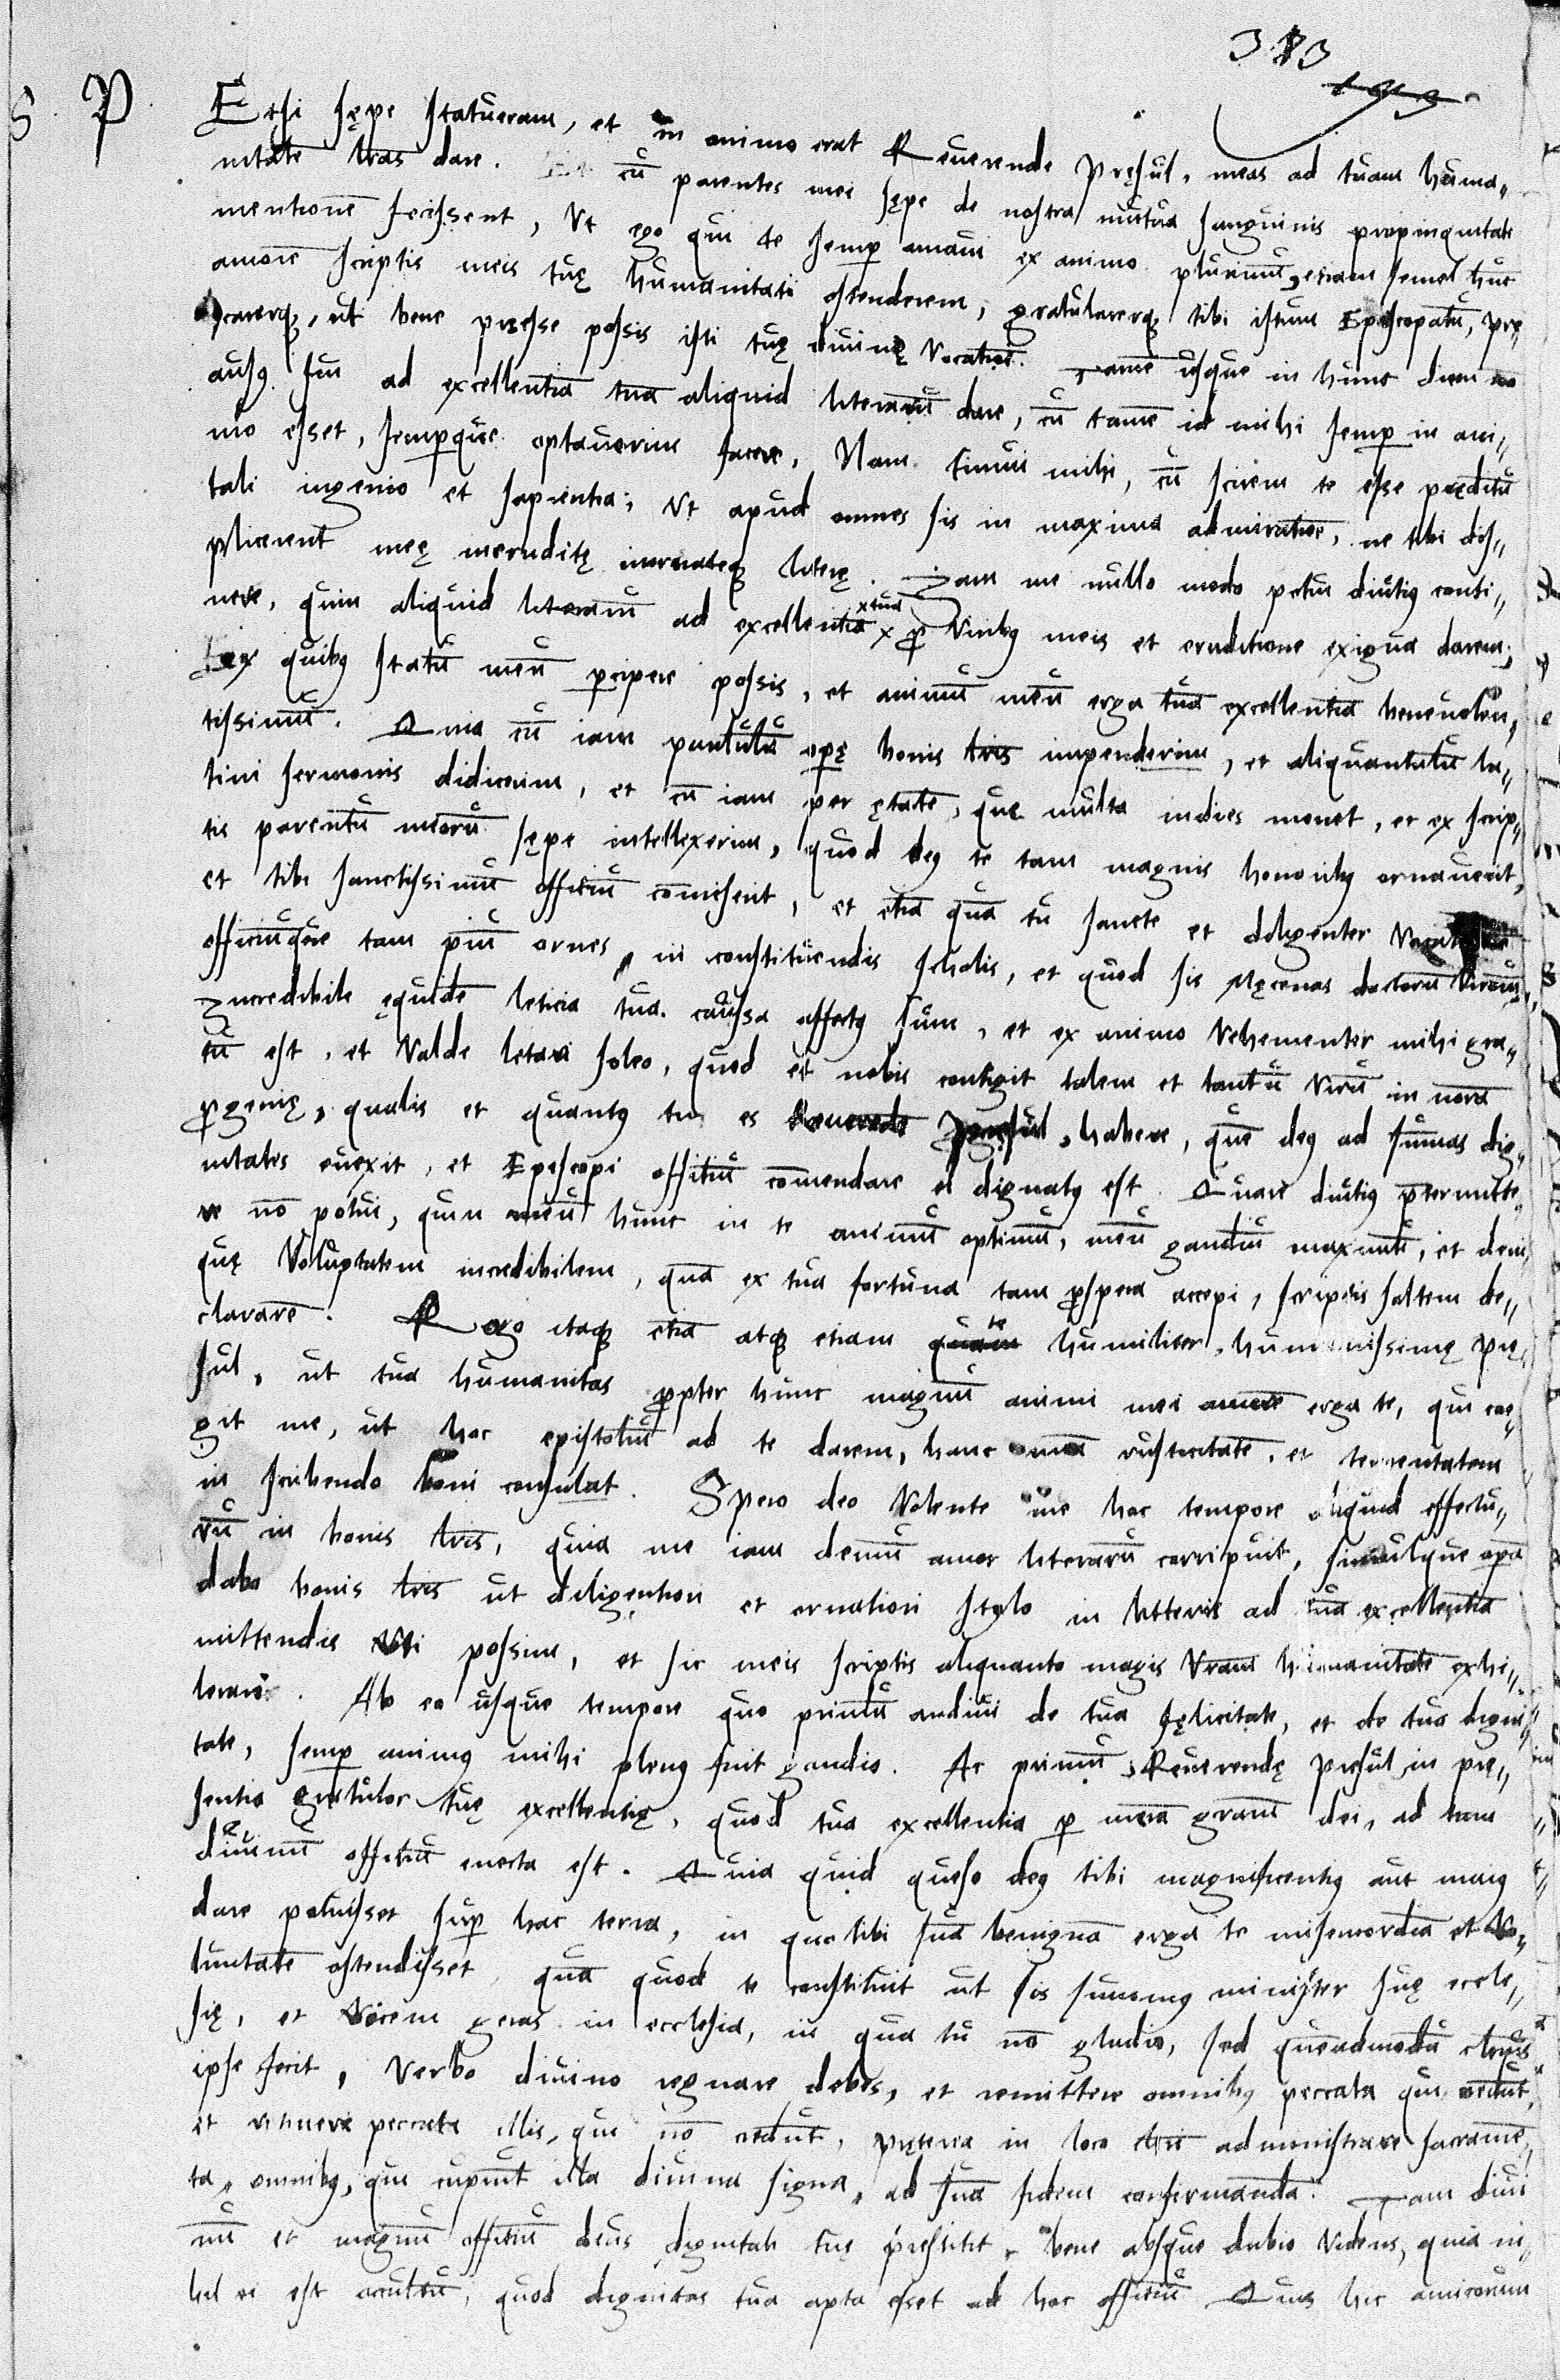 383
S. P. Etsi sępe statueram, et in animo erat Reuerende Pręsul, meas ad tuam huma„
nitatē lras dare. cū parentes mei sępe de nostra mutua sanguinis propinquitate
mentionē fecissent, Vt ego qui te semp amaui ex animo plurimū, etiam semel hūc
amorē scriptis meis tuę humanitati ostenderem, gratularerq3 tibi istum Episcopatū, pre„
carerq3, ut bene pręesse possis isti tuę diuinę Vocationi. Tamē usque in hunc diem nō
ausq fui ad excellentiā tuā aliquid literarū dare, cū tamē id mihi semp in ani„
mo esset, sempque optauerim facere, Nam timui mihi, cū scirem te esse pręditū
tali ingenio et sapientia, Vt apud omnes sis in maxima admiratiōe, ne tibi dis„
plicerent meę ineruditę inornateq3 literę. Iam me nullo modo potui diutiq conti„
nere, quin aliquid literarū ad excellentiā x tuā x p Viribq meis et eruditione exigua darem,
ex quibq statū meū pcipere possis, et animū meū erga tuā excellentiā beneuolen„
tissimū. Quia cū iam paulūlū operę bonis lris impenderim, et aliquantulū la„
tini sermonis didicerim, et cū iam per ętatē, que multa indies monet, et ex scrip„
tis parentū meorū sępe intellexerim, quod deq te tam magnis honoribq ornauerit,
et tibi sanctissimū officiū comiserit, et etiā quā tu sancte et diligenter
officiūque tam piū ornes, in constituendis scholis, et quod sis Męcenas doctorū Virorū,
Incredibile ęquidē leticia tua caussa affectq sum, et ex animo Vehementer mihi gra„
tū est, et Valde letari soleo, quod et nobis contigit talem et tantū Virū in nostra
pgenię, qualis et quantq tu es Reuerende Pręsul, habere, quē deq ad summas dig„
nitates euexit, et Episcopi offitiū comendare ei dignatq est. Quare diutiq pretermitte„
re nō potui, quin meū hunc in te animū optimū, meū gaudiū maximū, et deni„
quę Voluptatem incredibilem, quā ex tua fortuna tam pspera accepi, scriptis saltem de„
clararē. Rogo itaq3 etiā atq3 etiam te humiliter, humanissimę prę„
sul, ut tua humanitas ppter hunc magnū animi mei amorē erga te, qui coe„
git me, ut hoc epistoliū ad te darem, hanc meā rusticitatē, et temeritatem
in scribendo boni consulat. Spero deo Volente me hoc tempore aliquid effectu„
rū in bonis lris, quia me iam demū amor literarū corripuit, simulque operā
dabo bonis lris ut diligentiori et ornatiori stylo in litteris ad tuā excellentiā
mittendis Vti possim, et sic meis scriptis aliquanto magis Vram humanitatē exhi„
lerarē. Ab eo usque tempore quo primū audiui de tua fęlicitate, et de tua digni„
tate, semp animq mihi plenq fuit gaudio. Ac primū Reuerendę pręsul in prę„
sentia gratulor tuę excellentię, quod tua excellentia p merā gratiā dei, ad tam
diuinū offitiū euecta est. Quia quid quęso deq tibi magnificentiq aut maiq
dare potuisset sup hac terra, in quo tibi suā benignā erga te misericordiā et Vo„
luntatē ostendisset, quā quod te constituit ut sis summq minister suę eccle„
się, et Vicem geras in ecclesia, in qua tu nō gladio, sed quēadmodū chrus
ipse fecit, Verbo diuino regnare debes, et remittere omnibq peccata qui credūt,
et retinere peccata illis, qui nō credūt, pręterea in loco chri administrare sacramē„
ta, omnibq, qui cupiūt illa diuina signa, ad suā fidem confirmandā. Tam diui
nū et magnū offitiū deus dignitati tuę pręstitit, bene absque dubio Videns, quia ni„
hil ei est occultū, quod dignitas tua apta esset ad hoc offitiū. Quis hic amicorum